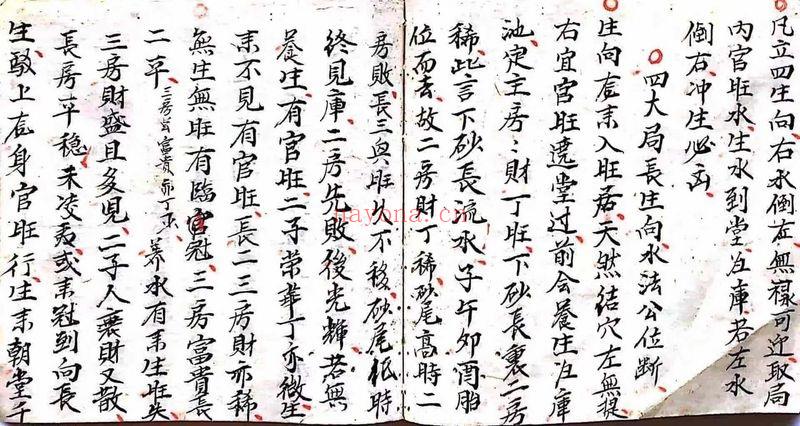 凡立四生向右水倒左無襍可迎取局
內官旺水生水到堂左庫若左水
倒右冲生必凶
四大局長生向水法公位断
生向左来入旺居天然結穴左無提
右宜官旺遶堂过前会養生左庫
池定主房〻財丁旺下砂長裏二房
稀此言下砂長流水子午卯酉胎
位而去故二房財丁稀砂尾高時二
房敗長三與旺久不移砂尾低時
終見庫二房先敗後光輝若無
養生有官旺二子荣華丁亦微生
来不見有官旺長二三房財亦稀
無生無旺有臨官冠三房富貴長
二平三房云富貴亦丁不養水有来生旺失
三房財盛且多児二子人衰財又散
長房平穩未凌夷或来冠到向長
生敬上左身官旺行生来朝堂千
hayona.cn